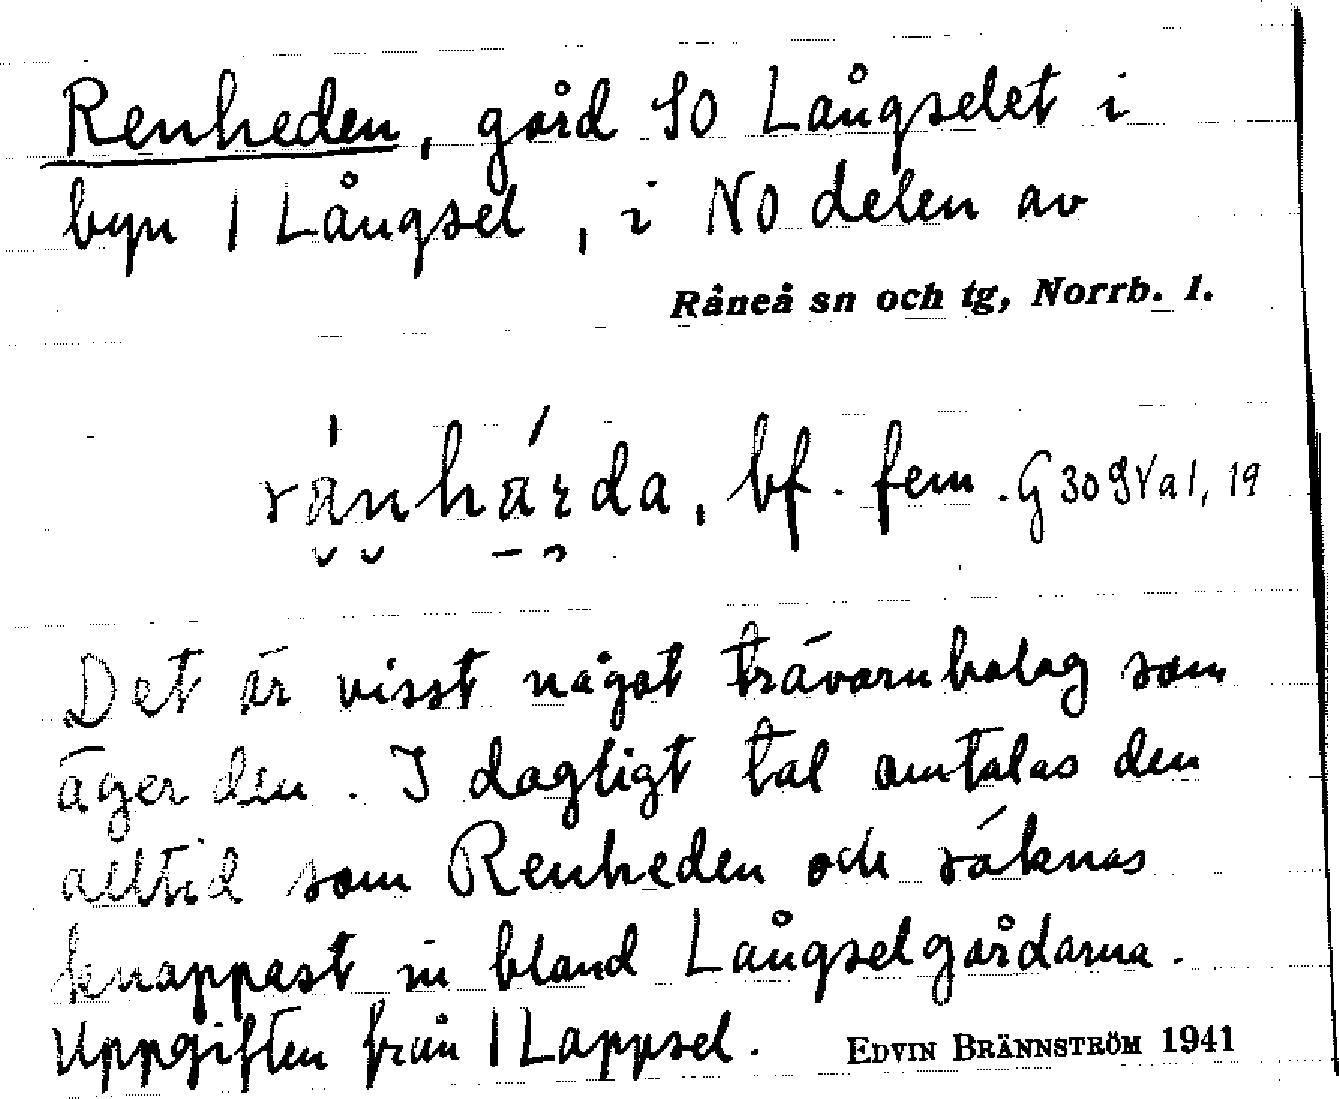 Renheden, gård SO Långselet i
byn 1 Långsel, i NO delen av
Råneå sn och tg, Norrb. l.
bf. fem. G 309 Va1, 19
Det är visst något trävarubolag som
äger den. I dagligt tal omtalas den
alltid som Renheden och räknas
knappast in bland Långselgårdarna.
Uppgiften från 1 Lappsel. EDVIN BRÄNNSTRÖM 1941